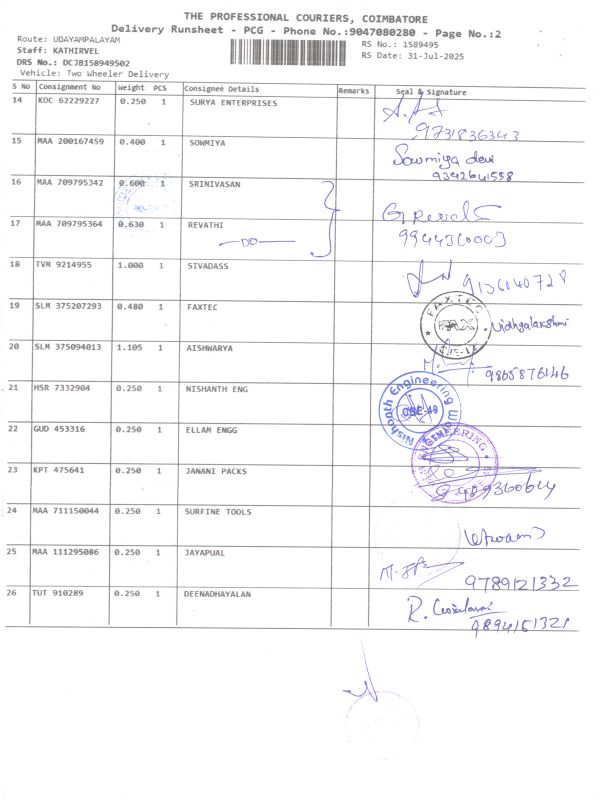 THE PROFESSIONAL COURIERS, COIMBATORE
Delivery Runsheet - PCG - Phone No.:9047080280 - Page No.:2
Route: UDAYAMPALAYAM
Staff: KATHIRVEL
DRS No.: DCJB158949502
Vehicle: Two Wheeler Delivery
RS No.: 1589495
RS Date: 31-Jul-2025
S No Consignment No Weight PCS Consignee Details Remarks Seal & Signature
14 KOC 62229227 0.250 1 SURYA ENTERPRISES
9731836343
15 MAA 200167459 0.400 1 SOWMIYA Sowmiya devi
9342641558
16 MAA 709795342 0.600 1 SRINIVASAN
17 MAA 709795364 0.630 1 REVATHI
DO
18 TVM 9214955 1.000 1 SIVADASS
19 SLM 375207293 0.480 1 FAXTEC
FAXTEC
FAX
Vidhyalakshmi
20 SLM 375094013 1.105 1 AISHWARYA
9865876146
21 HSR 7332904 0.250 1 NISHANTH ENG
Nishanth Engineering
22 GUD 453316 0.250 1 ELLAM ENGG
23 KPT 475641 0.250 1 JANANI PACKS
24 MAA 711150044 0.250 1 SURFINE TOOLS
25 MAA 111295086 0.250 1 JAYAPUAL
9789121332
26 TUT 910289 0.250 1 DEENADHAYALAN
9894151321